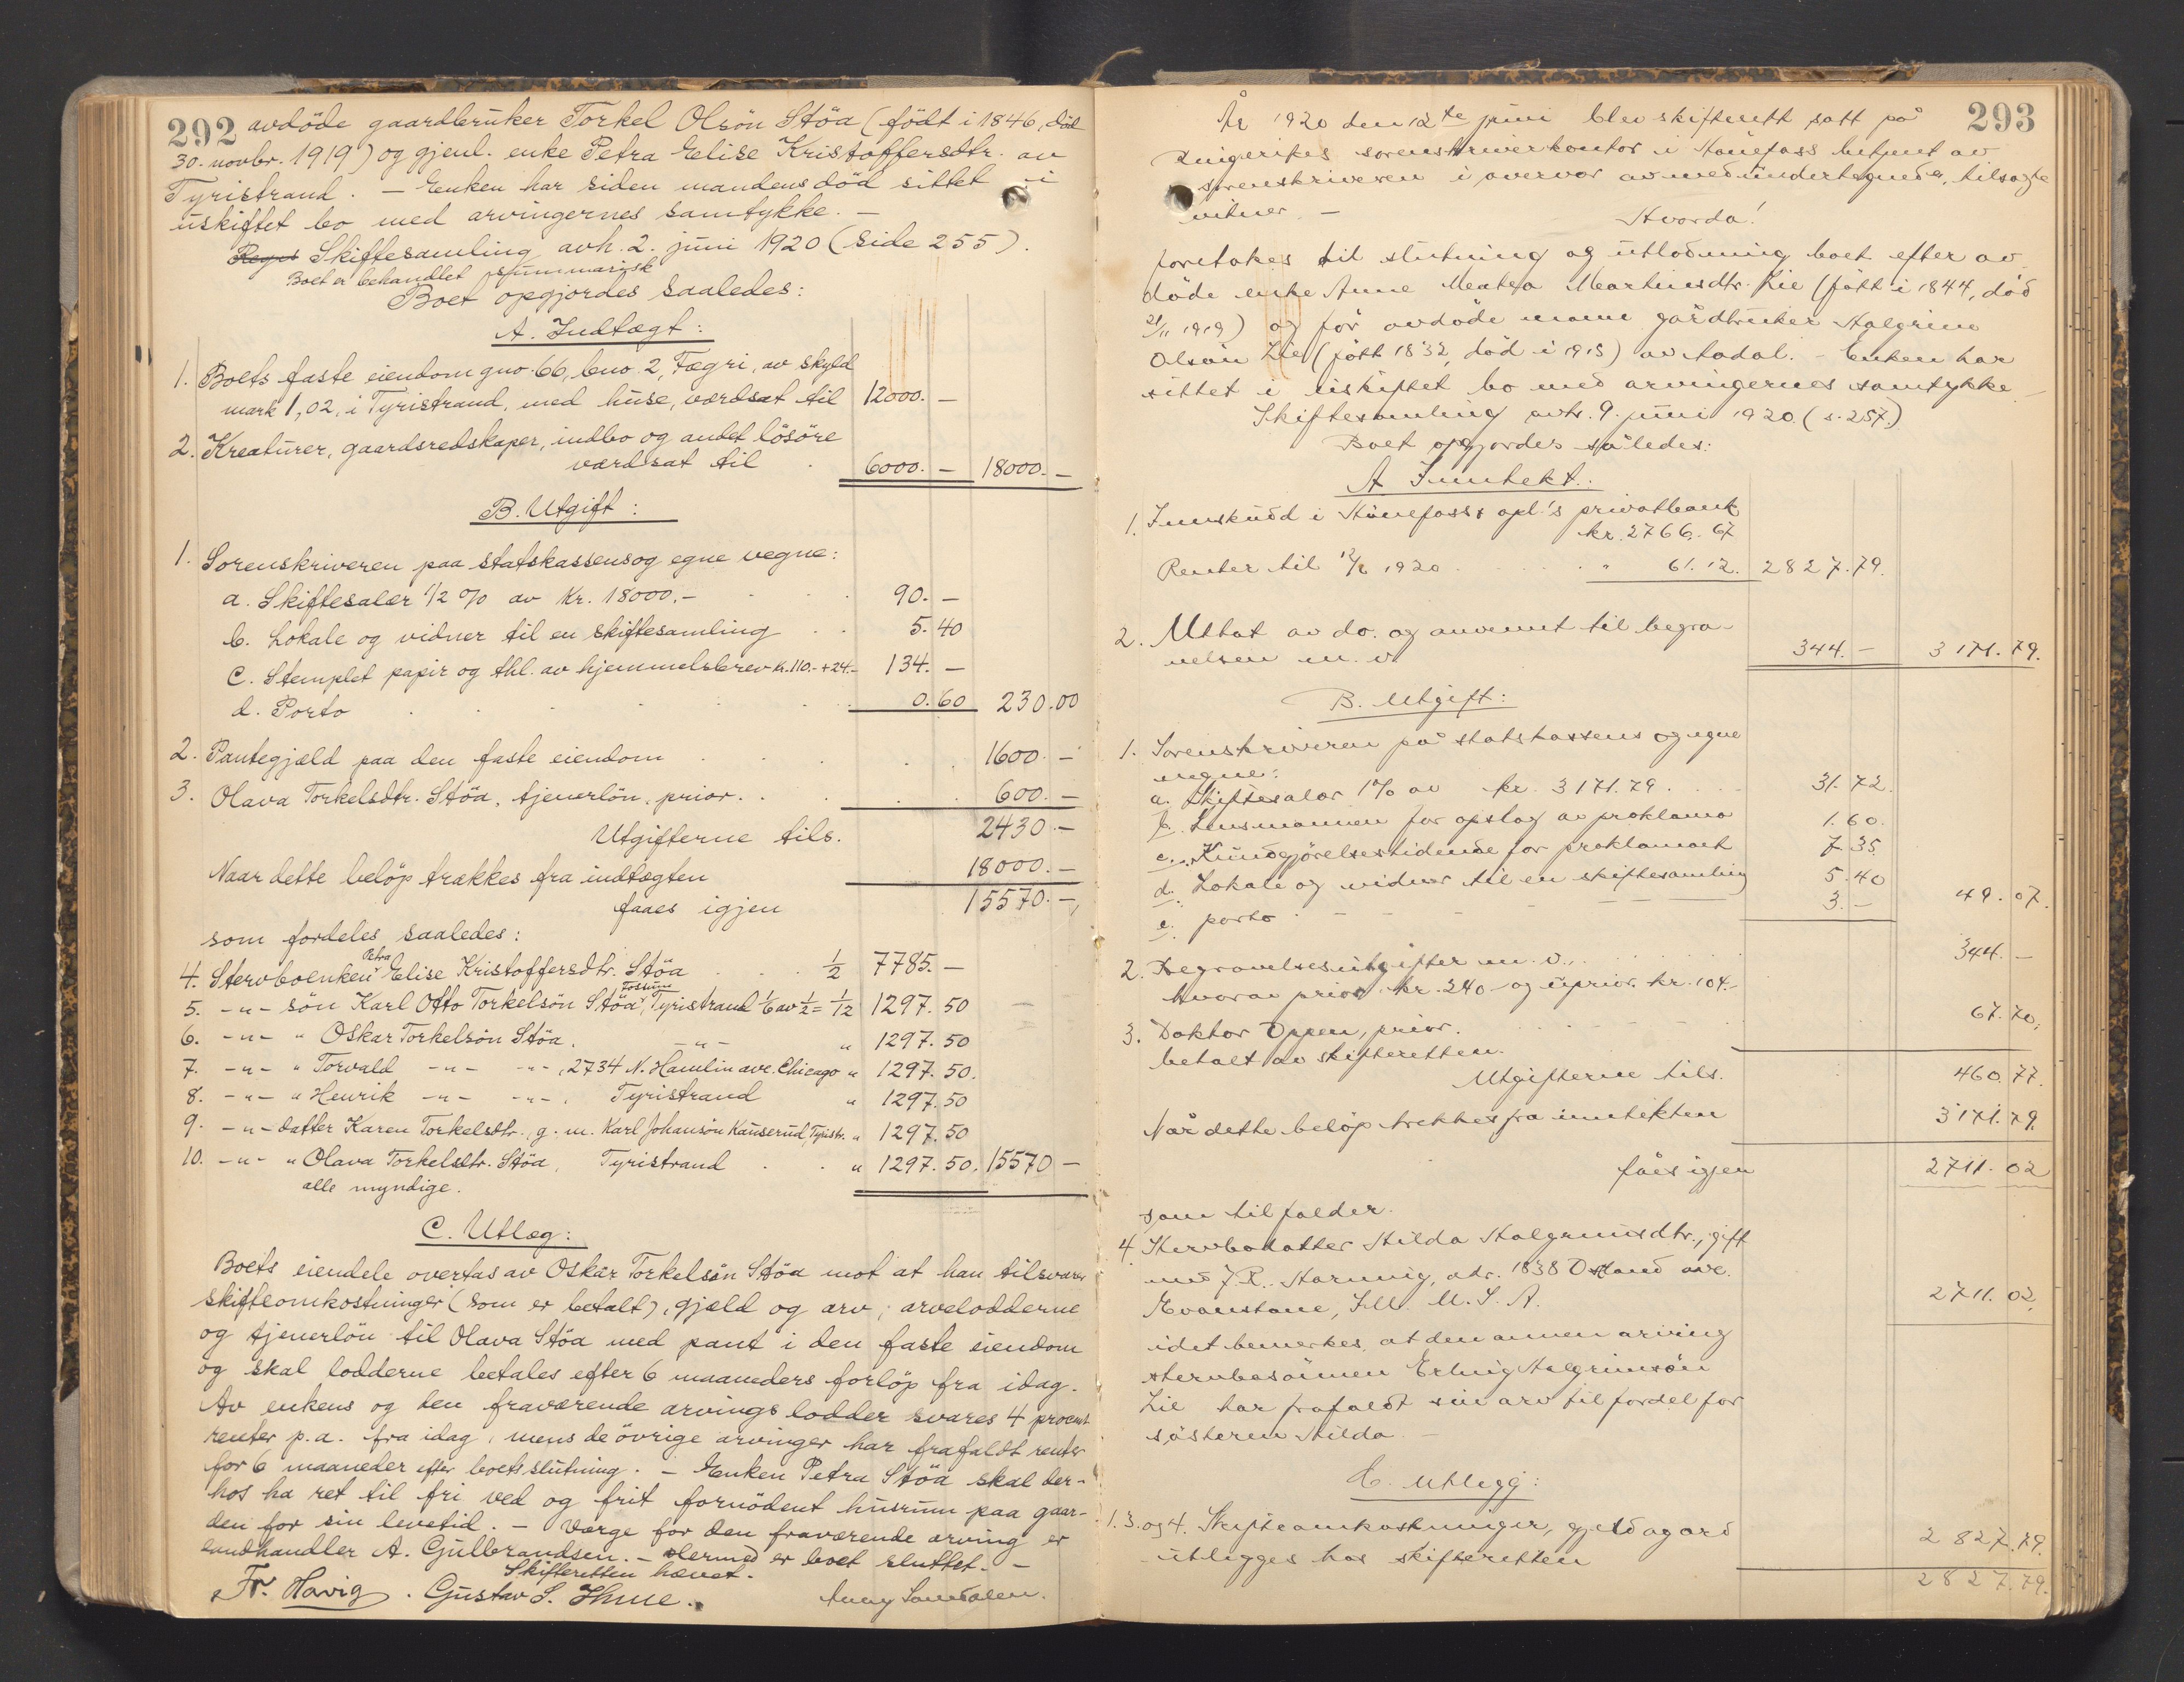 292 avdöde gaardbruker Torkel Olsön Stöa (födt i 1846, död
30. novbr. 1919) og gjenl. enke Petra Elise Kristoffersdtr. av
Tyristrand. — Enken har siden mandens död sittet i
uskiftet bo med arvingernes samtykke. —
Skiftesamling avh. 2. juni 1920 (side 255).
Boet er behandlet summarisk
Boet opgjordes saaledes:
A. Indtægt:
1. Boets faste eiendom gno 66, bno 2, Fægri, av skyld
mark 1,02, i Tyristrand, med huse, værdsat til 12000. —
2. Kreaturer, gaardsredskaper, indbo og andet lösöre
værdsat til 6000. — 18000. —
B. Utgift:
1. Sorenskriveren paa statskassens og egne vegne:
a. Skiftesalær 1/2 % av Kr. 18000.- 90. —
b. Lokale og vidner til en skiftesamling 5.40
c. Stemplet papir og thl. av hjemmelsbrev kr. 110.- + 24.- 134. —
d. Porto 0.60 230.00
2. Pantegjæld paa den faste eiendom 1600. —
3. Olava Torkelsdtr. Stöa, tjenerlön, prior. 600. —
Utgifterne tils. 2430. —
Naar dette belöp trækkes fra indtægten 18000. —
faaes igjen 15570. —,
som fordeles saaledes:
4. Stervboenken Petra Elise Kristoffersdtr. Stöa 1/2 7785. —
5. -"- sön Karl Otto Torkelsön Stöa, Fossum Tyristrand 1/6 av 1/2 = 1/12 1297.50
6. -"- " Oskar Torkelsön Stöa, -"- " 1297.50
7. -"- " Torvald -"- -"-, 2734 N. Hamlin ave. Chicago " 1297.50.
8. -"- " Henrik -"- -"-, Tyristrand " 1297.50
9. -"- datter Karen Torkelsdtr., g. m. Karl Johansön Kauserud, Tyristr. " 1297.50
10. -"- " Olava Torkelsdtr. Stöa, Tyristrand " 1297.50. 15570 —
alle myndige.
C. Utlæg:
Boets eiendele overtas av Oskar Torkelsön Stöa mot at han tilsvarer
skifteomkostninger (som er betalt), gjæld og arv; arvelodderne
og tjenerlön til Olava Stöa med pant i den faste eiendom
og skal lodderne betales efter 6 maaneders forlöp fra idag.
Av enkens og den fraværende arvings lodder svares 4 procent
renter p.a. fra idag, mens de övrige arvinger har frafaldt renter
for 6 maaneder efter boets slutning. — Enken Petra Stöa skal der-
hos ha ret til fri ved og frit fornödent husrum paa gaar-
den for sin levetid. — Værge for den fraværende arving er
landhandler A. Gulbrandsen. — Dermed er boet sluttet. —
Skifteretten hævet.
Fr. Havig. Gustav S. Thune.
293
År 1920 den 12te juni blev skifterett satt på
Ringerikes sorenskriverkontor i Hönefoss betjent av
sorenskriveren i overvær av medundertegnede, tilsagte
vitner. —
Hvorda!
foretokes til slutning og utlodning boet efter av-
döde enke Anne Mathea Martinsdtr. Lie (fött i 1844, död
21/11 1919) og för avdöde mann gårdbruker Halgrim
Olsön Lie (fött 1832, död i 1915) av Aadal. – Enken har
sittet i uskiftet bo med arvingernes samtykke. —
Skiftesamling avh. 9. juni 1920. (s. 257.)
Boet opgjordes således:
A Inntekt.
1. Innskudd i Hönefoss opl.'s privatbank
kr. 2766.67
Renter til 12/6 1920 " 61.12. 2827.79.
2. Uttat av do. og anvennt til begra-
velsen m. v. 344. — 3171.79.
B. Utgift:
1. Sorenskriveren på statskassens og egne
vegne:
a. Skiftesalær 1% av kr. 3171.79. 31.72.
b. Lensmannen for opslag av proklama 1.60.
c. Kundgjörelsestidende for proklamaet 7.35
d. Lokale og vidner til en skiftesamling 5.40
e. porto 3. — 49.07.
2. Begravelsesutgifter m. v., 344. —
hvorav prior. kr. 240 og uprior. kr. 104.-
3. Doktor Oppen, prior. 67.70,
betalt av skifteretten.
Utgifterne tils. 460.77.
Når dette belöp trekkes fra inntekten 3171.79.
fåes igjen 2711.02
som tilfalder.
4. Stervbodatter Hilda Halgrimsdtr., gift
med J. R. Harnnig, adr. 1838 ave.
Evanstone, Ill. U. S. A. 2711.02.
idet bemerkes, at den annen arving
stervbosönnen Erling Halgrimsön
Lie har frafaldt sin arv til fordel for
sösteren Hilda —
C. Utlegg:
1. 3. og 4. Skifteomkostninger, gjeld og arv 2827.79.
utlegges hos skifteretten
2827.79.